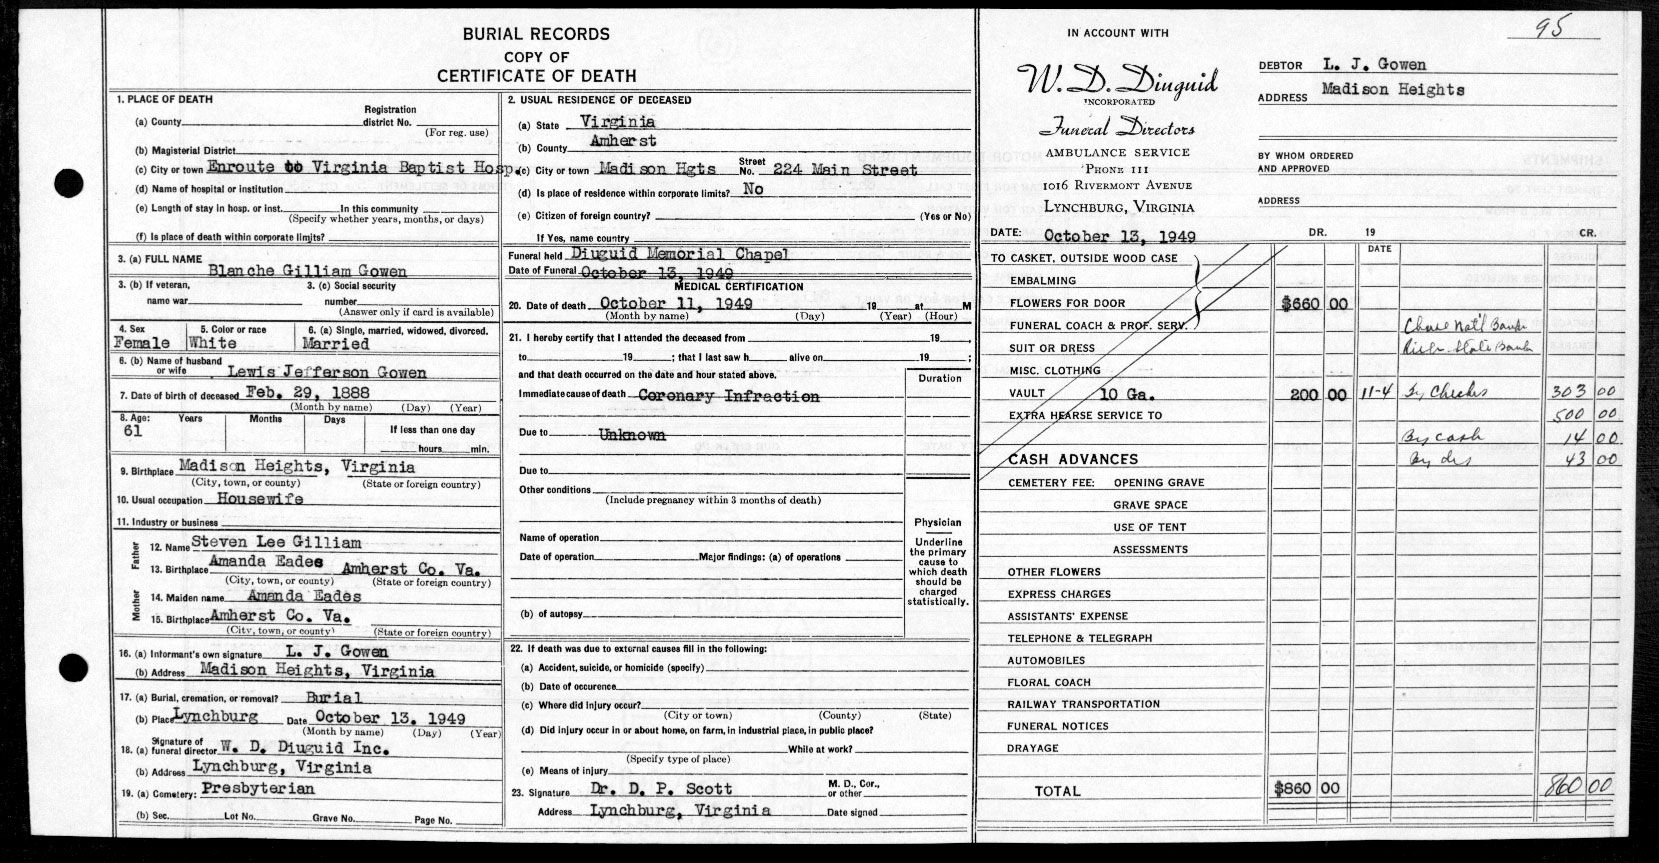 BURIAL RECORDS
COPY OF
CERTIFICATE OF DEATH
1. PLACE OF DEATH
(a) County Registration district No.
(For reg. use)
(b) Magisterial District
(c) City or town Enroute to Virginia Baptist Hosp.
(d) Name of hospital or institution
(e) Length of stay in hosp. or inst. In this community
(Specify whether years, months, or days)
(f) Is place of death within corporate limits?
3. (a) FULL NAME
Blanche Gilliam Gowen
3. (b) If veteran, name war 3. (c) Social security number
(Answer only if card is available)
4. Sex 5. Color or race 6. (a) Single, married, widowed, divorced.
Female White Married
6. (b) Name of husband or wife Lewis Jefferson Gowen
7. Date of birth of deceased Feb. 29, 1888
(Month by name) (Day) (Year)
8. Age: Years Months Days If less than one day
61
hours min.
9. Birthplace Madison Heights, Virginia
(City, town, or county) (State or foreign country)
10. Usual occupation Housewife
11. Industry or business
Father
12. Name Steven Lee Gilliam
13. Birthplace Amanda Eades Amherst Co. Va.
(City, town, or county) (State or foreign country)
Mother
14. Maiden name Amanda Eades
15. Birthplace Amherst Co. Va.
(City, town, or county) (State or foreign country)
16. (a) Informant's own signature L. J. Gowen
(b) Address Madison Heights, Virginia
17. (a) Burial, cremation, or removal? Burial
(b) Place Lynchburg Date October 13. 1949
(Month by name) (Day) (Year)
18. (a) Signature of funeral director W. D. Diuguid Inc.
(b) Address Lynchburg, Virginia
19. (a) Cemetery: Presbyterian
(b) Sec. Lot No. Grave No. Page No.
2. USUAL RESIDENCE OF DECEASED
(a) State Virginia
(b) County Amherst
(c) City or town Madison Hgts Street No. 224 Main Street
(d) Is place of residence within corporate limits? No
(e) Citizen of foreign country? (Yes or No)
If Yes, name country
Funeral held Diuguid Memorial Chapel
Date of Funeral October 13, 1949
MEDICAL CERTIFICATION
20. Date of death October 11, 1949 19 at M
(Month by name) (Day) (Year) (Hour)
21. I hereby certify that I attended the deceased from 19 ,
to 19 ; that I last saw h alive on 19 ;
and that death occurred on the date and hour stated above.
Duration
Immediate cause of death Coronary Infraction
Due to Unknown
Due to
Other conditions
(Include pregnancy within 3 months of death)
Name of operation
Date of operation Major findings: (a) of operations
(b) of autopsy
Physician
Underline
the primary
cause to
which death
should be
charged
statistically.
22. If death was due to external causes fill in the following:
(a) Accident, suicide, or homicide (specify)
(b) Date of occurence
(c) Where did injury occur?
(City or town) (County) (State)
(d) Did injury occur in or about home, on farm, in industrial place, in public place?
While at work?
(Specify type of place)
(e) Means of injury
23. Signature Dr. D. P. Scott M. D., Cor., or other
Address Lynchburg, Virginia Date signed
95
IN ACCOUNT WITH
W. D. Diuguid
INCORPORATED
Funeral Directors
AMBULANCE SERVICE
'PHONE 111
1016 RIVERMONT AVENUE
LYNCHBURG, VIRGINIA
DEBTOR L. J. Gowen
ADDRESS Madison Heights
BY WHOM ORDERED
AND APPROVED
ADDRESS
DATE: October 13, 1949 DR. 19 CR.
DATE
TO CASKET, OUTSIDE WOOD CASE
EMBALMING
FLOWERS FOR DOOR $660 00
FUNERAL COACH & PROF. SERV. Chase Nat'l Bank
SUIT OR DRESS State Bank
MISC. CLOTHING
VAULT 10 Ga. 200 00 11-4 By Checks 303 00
EXTRA HEARSE SERVICE TO 500 00
By cash 14 00
CASH ADVANCES By dis 43 00
CEMETERY FEE: OPENING GRAVE
GRAVE SPACE
USE OF TENT
ASSESSMENTS
OTHER FLOWERS
EXPRESS CHARGES
ASSISTANTS' EXPENSE
TELEPHONE & TELEGRAPH
AUTOMOBILES
FLORAL COACH
RAILWAY TRANSPORTATION
FUNERAL NOTICES
DRAYAGE
TOTAL $860 00 860 00